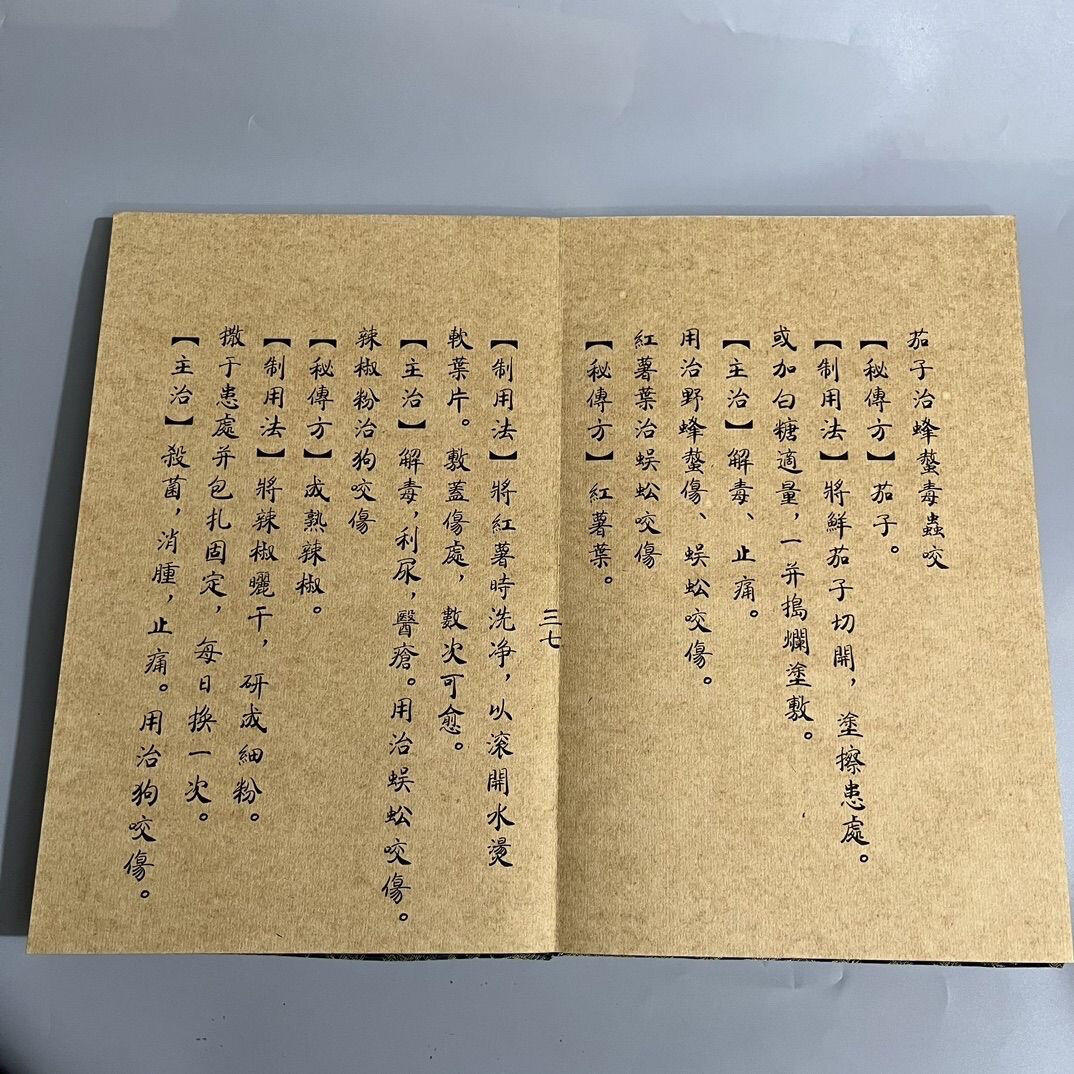 茄子治蜂螫毒蟲咬
【秘傳方】茄子。
【制用法】將鮮茄子切開，塗擦患處。
或加白糖適量，一并搗爛塗敷。
【主治】解毒、止痛。
用治野蜂螫傷、蜈蚣咬傷。
紅薯葉治蜈蚣咬傷
【秘傳方】紅薯葉。
三七
【制用法】將紅薯時洗净，以滚開水燙
軟葉片。敷蓋傷處，數次可愈。
【主治】解毒，利尿，醫瘡。用治蜈蚣咬傷。
辣椒粉治狗咬傷
【秘傳方】成熟辣椒。
【制用法】將辣椒曬干，研成細粉。
撒于患處并包扎固定，每日换一次。
【主治】殺菌，消腫，止痛。用治狗咬傷。